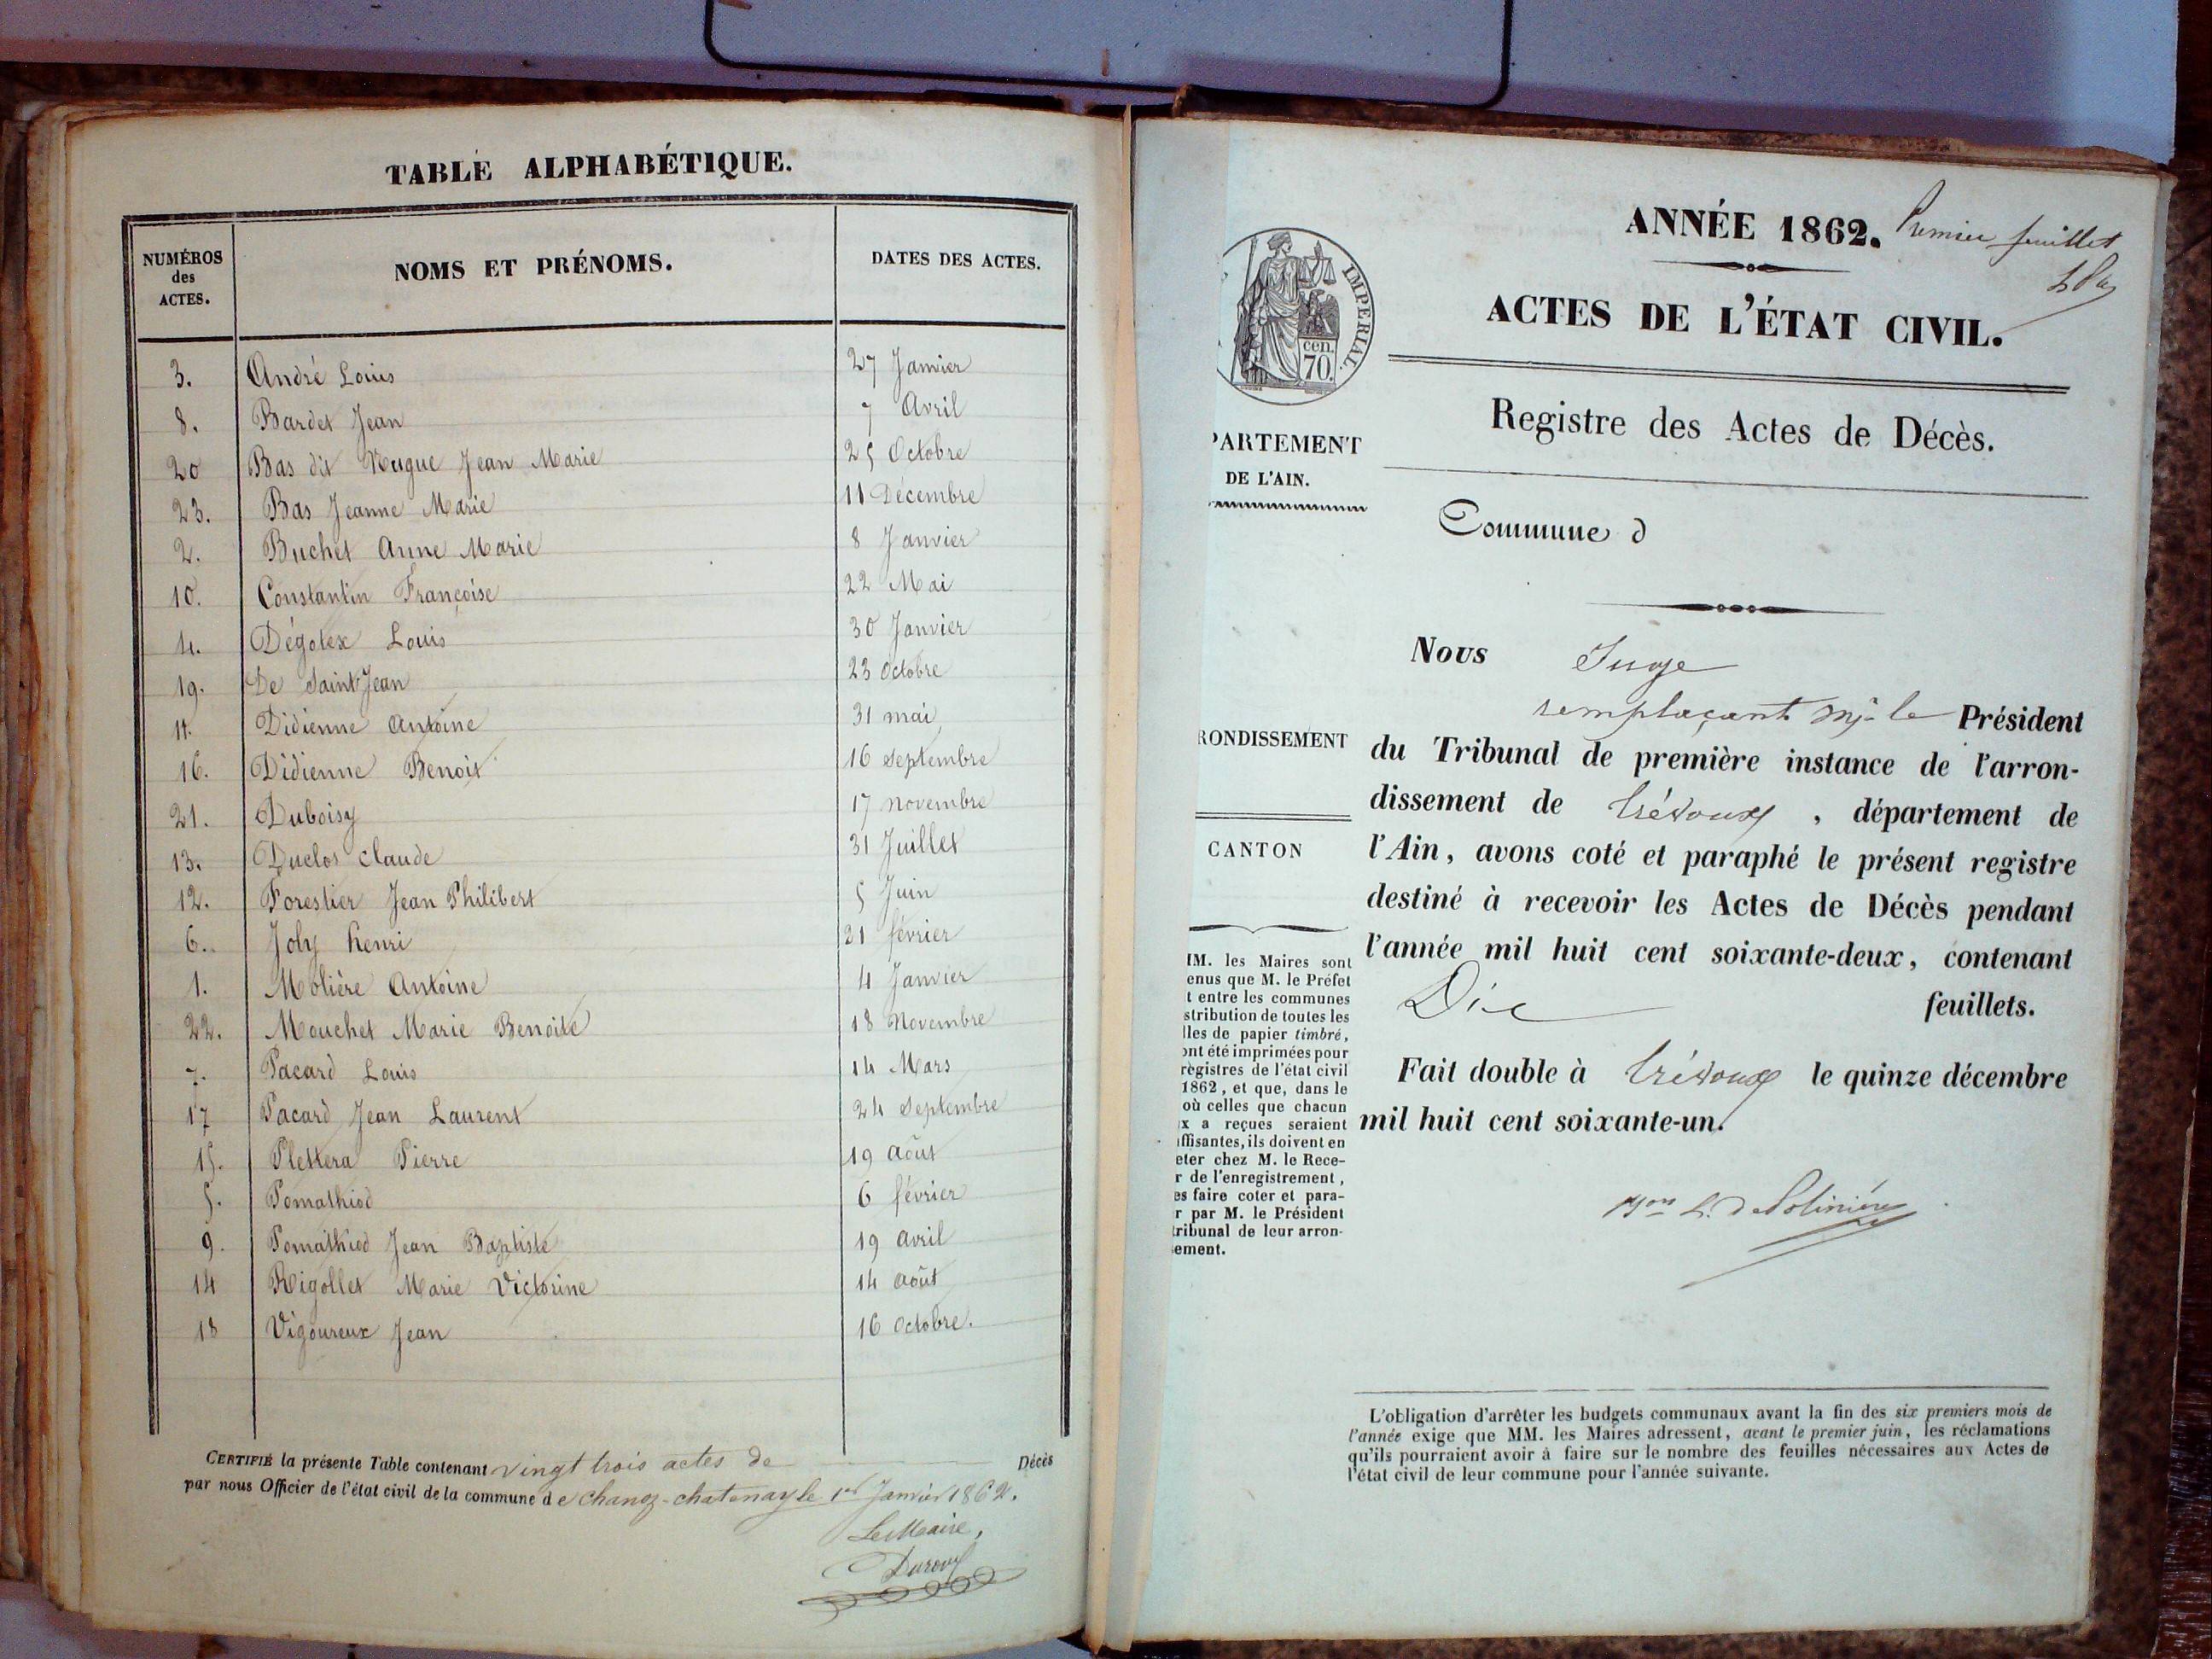 TABLE ALPHABÉTIQUE.
NUMÉROS des ACTES. NOMS ET PRÉNOMS. DATES DES ACTES.
3. André Louis 27 Janvier
8. Bardet Jean 7 Avril
20 Bas dit Nugue Jean Marie 25 Octobre
23. Bas Jeanne Marie 11 Décembre
2. Buchet Anne Marie 8 Janvier
10. Constantin Françoise 22 Mai
4. Dégolex Louis 30 Janvier
19. De Saint Jean 23 Octobre
11. Didienne Antoine 31 mai
16. Didienne Benoit 16 Septembre
21. Duboisy 17 novembre
13. Duclos Claude 31 Juillet
12. Forestier Jean Philibert 5 Juin
6. Joly henri 21 février
1. Molière Antoine 4 Janvier
22. Mouchet Marie Benoite 18 Novembre
7. Pacard Louis 14 Mars
17 Pacard Jean Laurent 24 Septembre
15. Plettera Pierre 19 août
5. Pomathiod 6 février
9. Pomathiod Jean Baptiste 19 avril
14 Rigollet Marie Victorine 14 août
18 Vigoureux Jean 16 Octobre.
CERTIFIÉ la présente Table contenant vingt trois actes de Décès
par nous Officier de l'état civil de la commune de Chanoz-chatenay le 1er Janvier 1862.
Le Maire,
ANNÉE 1862. Premier feuillet
ACTES DE L'ÉTAT CIVIL.
IMPERIAL.
cen.
70.
Registre des Actes de Décès.
PARTEMENT
DE L'AIN.
Commune d
Nous Juge
remplaçant Mr le Président
RONDISSEMENT
du Tribunal de première instance de l'arron-
dissement de Trévoux, département de
CANTON
l'Ain, avons coté et paraphé le présent registre
destiné à recevoir les Actes de Décès pendant
l'année mil huit cent soixante-deux, contenant
Dix feuillets.
Fait double à Trévoux le quinze décembre
mil huit cent soixante-un.
IM. les Maires sont
enus que M. le Préfet
t entre les communes
stribution de toutes les
lles de papier timbré,
ont été imprimées pour
registres de l'état civil
1862, et que, dans le
où celles que chacun
x a reçues seraient
ffisantes, ils doivent en
eter chez M. le Rece-
r de l'enregistrement,
es faire coter et para-
r par M. le Président
tribunal de leur arron-
ement.
L'obligation d'arrêter les budgets communaux avant la fin des six premiers mois de
l'année exige que MM. les Maires adressent, avant le premier juin, les réclamations
qu'ils pourraient avoir à faire sur le nombre des feuilles nécessaires aux Actes de
l'état civil de leur commune pour l'année suivante.